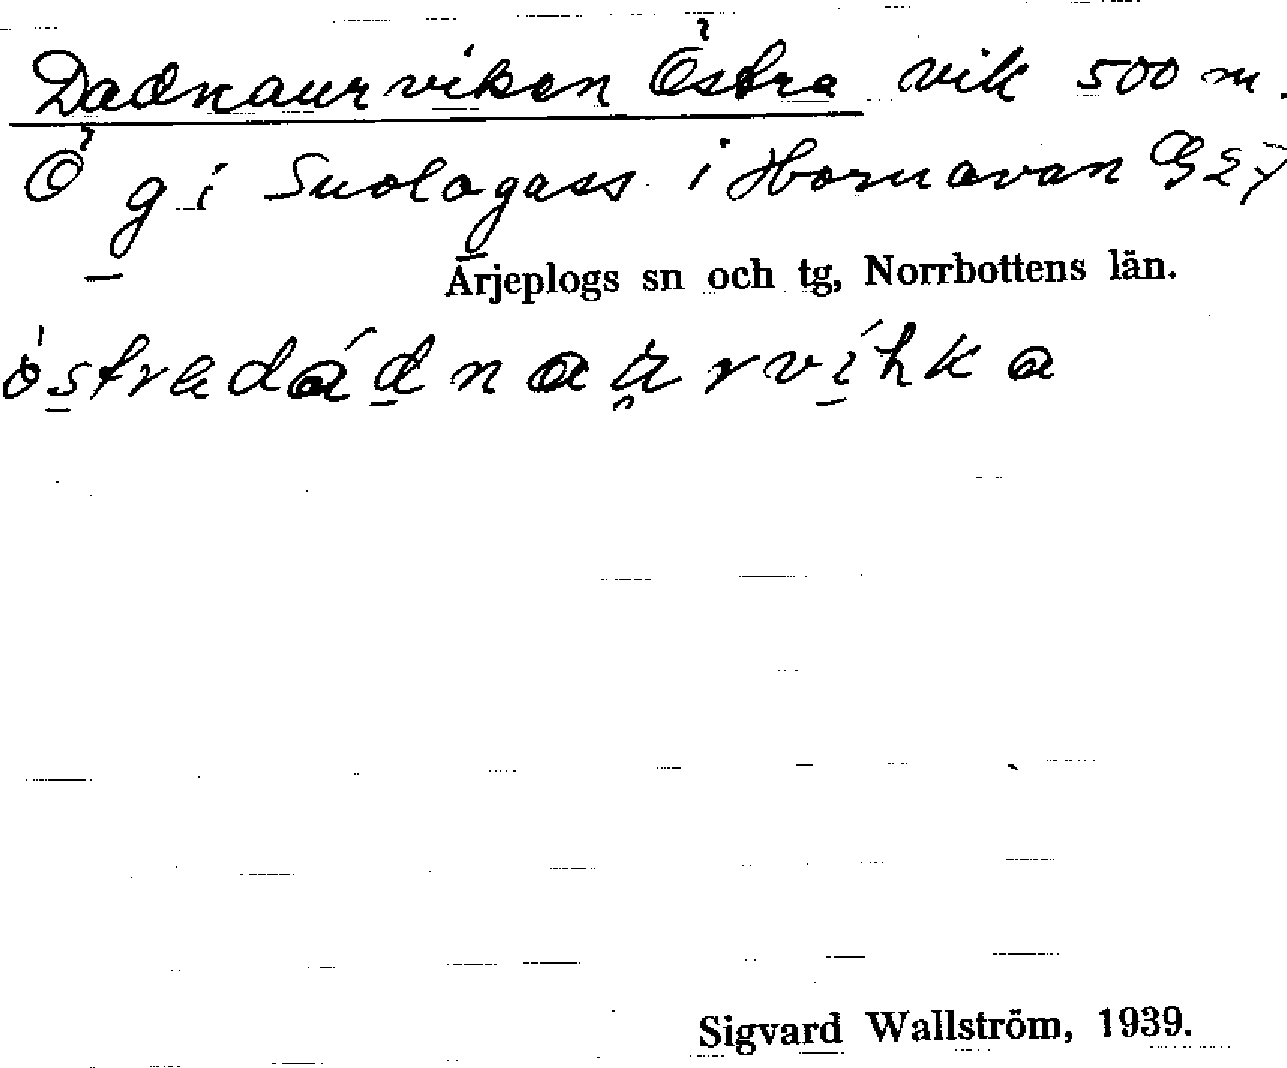 Dadnaurviken Östra vik 500 m.
Ö g i Suologass i Hornavan G 27
Arjeplogs sn och tg, Norrbottens län.
östradádnaa̯rvíhka
Sigvard Wallström, 1939.